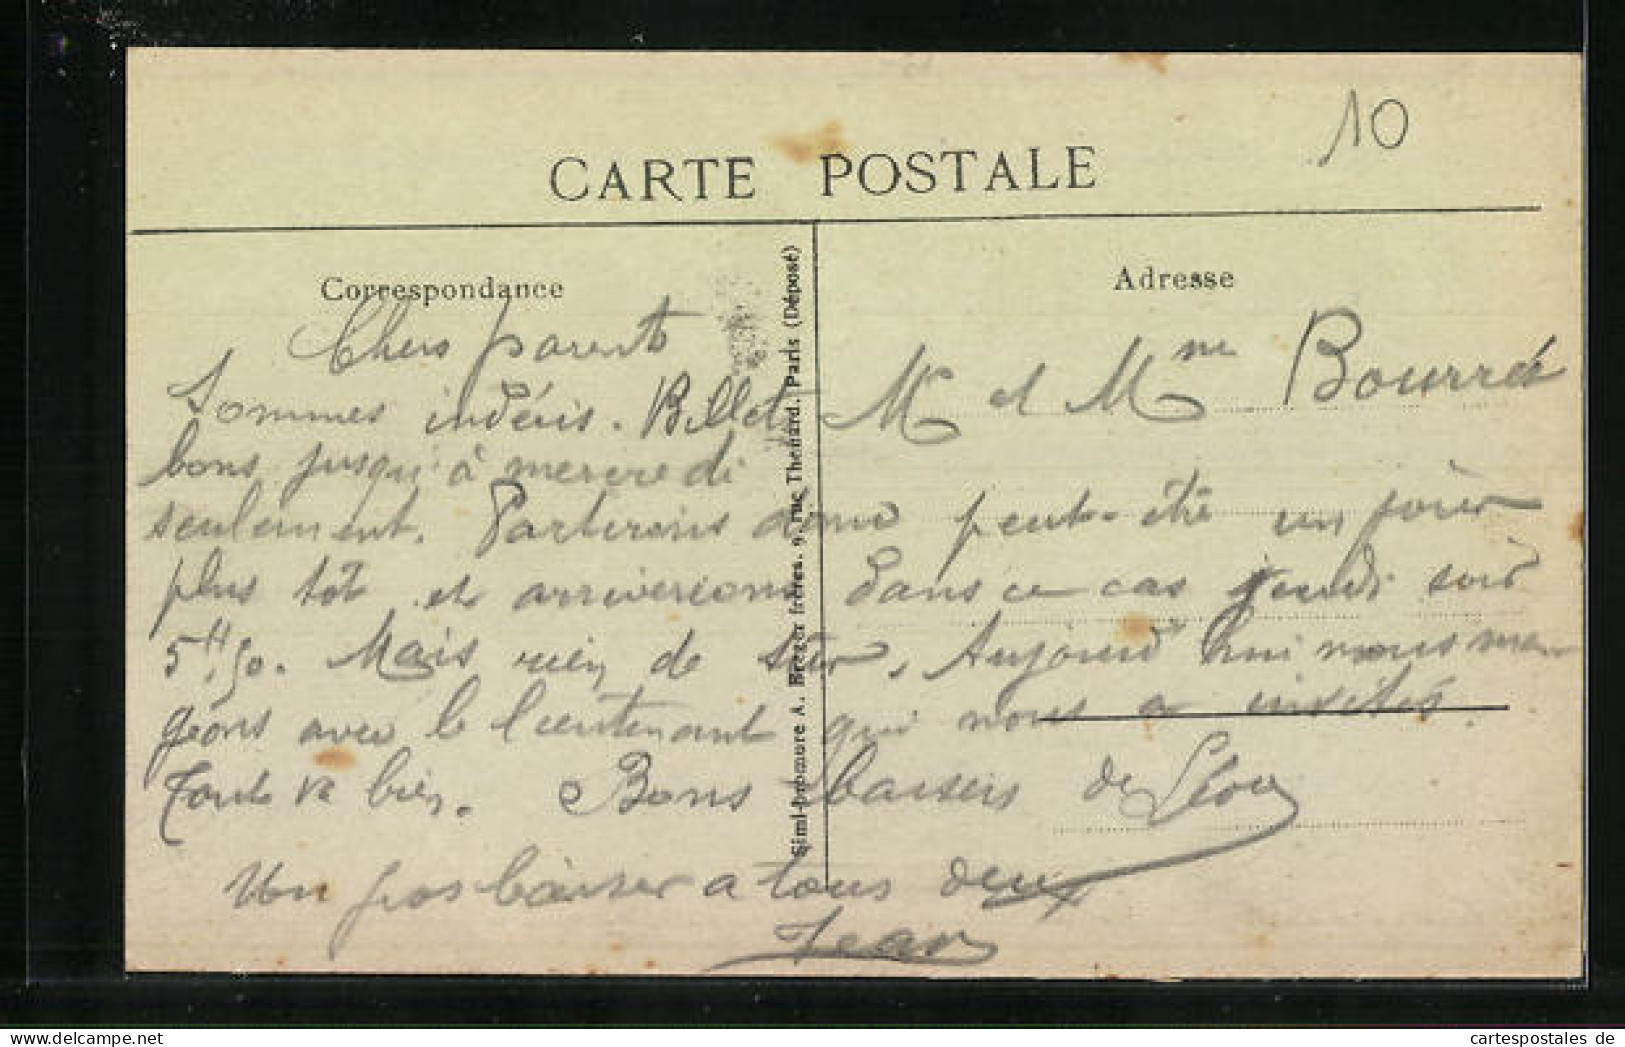 10
CARTE POSTALE
Correspondance
Adresse
Chers parents
Sommes indécis. Billets Mr et Mme Bourrés
bons jusqu'à mercredi
seulement. Partirons donc peut-être un jour
plus tôt et arriverions dans ce cas jeudi soir
5H50. Mais rien de sûr. Aujourd'hui nous man
geons avec le lieutenant qui nous a invités.
Tout va bien. Bons baisers de
Un gros baiser a tous deux
Jean
Simi-bromure A. Breger frères. 9, rue Thenard. Paris (Déposé)
cartespostales de